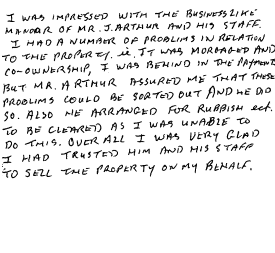 I WAS IMPRESSED WITH THE BUSINESSLIKE
MANOR OF MR. J. ARTHUR AND HIS STAFF.
I HAD A NUMBER OF PROBLIMS IN RELATION
TO THE PROPERTY. ie. IT WAS MORGAGED AND
CO-OWNERSHIP, I WAS BEHIND IN THE PAYMENTS
BUT MR. ARTHUR ASSURED ME THAT THESE
PROBLIMS COULD BE SORTED OUT AND HE DID
SO. ALSO HE ARRANGED FOR RUBBISH ect.
TO BE CLEARED AS I WAS UNABLE TO
DO THIS. OVER ALL I WAS VERY GLAD
I HAD TRUSTED HIM AND HIS STAFF
TO SELL THE PROPERTY ON MY BEHALF.